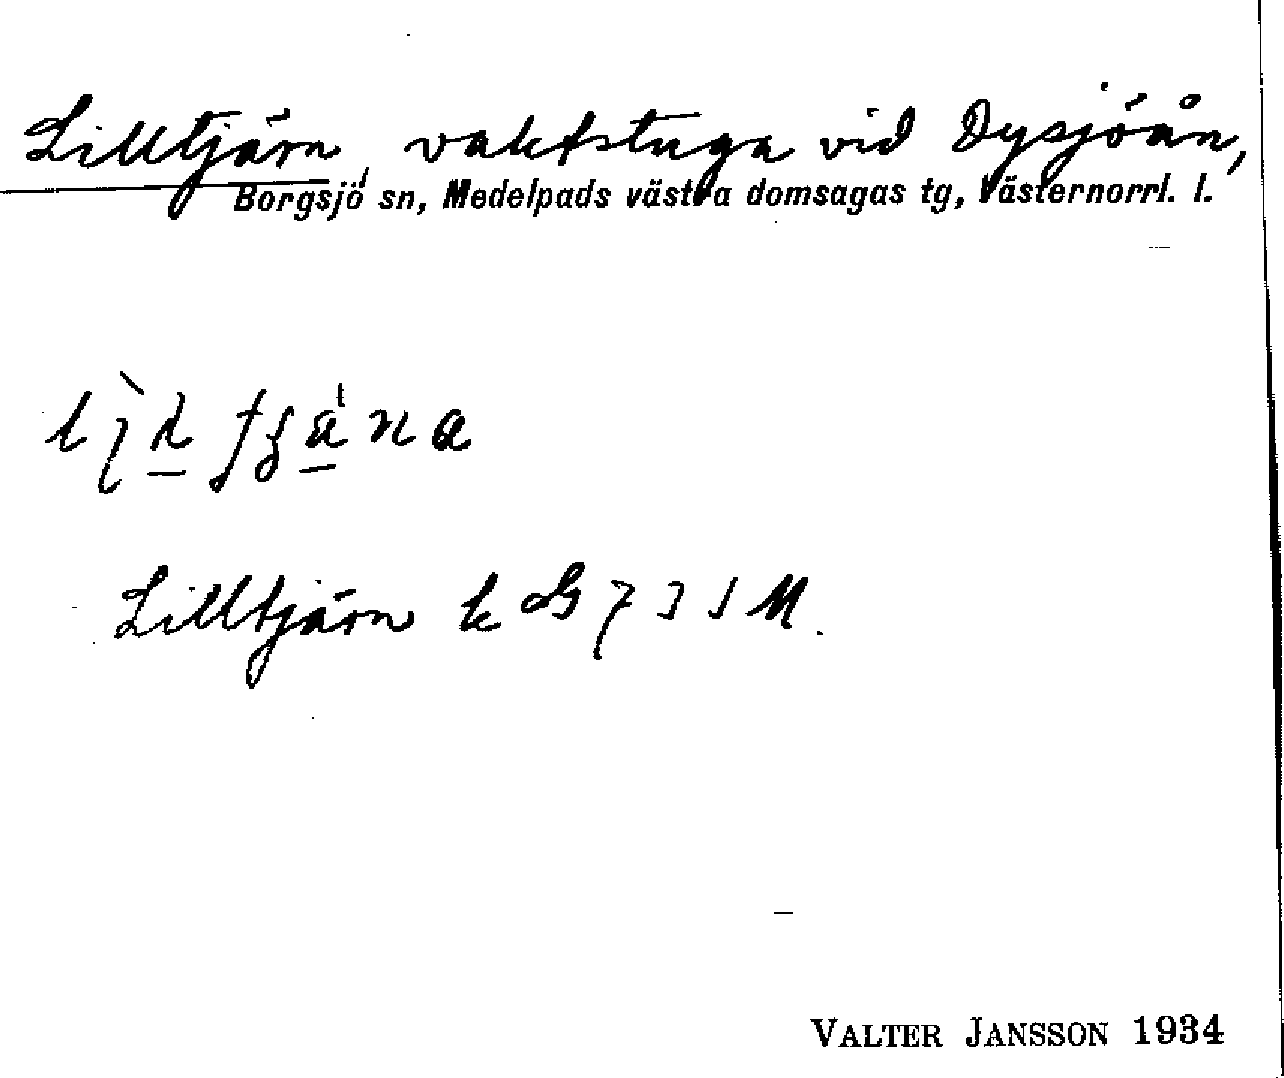 Lilltjärn, vaktstuga vid Dysjöån,
Borgsjö sn, Medelpads västra domsagas tg, Västernorrl. l.
Lilltjärn k
VALTER JANSSON 1934